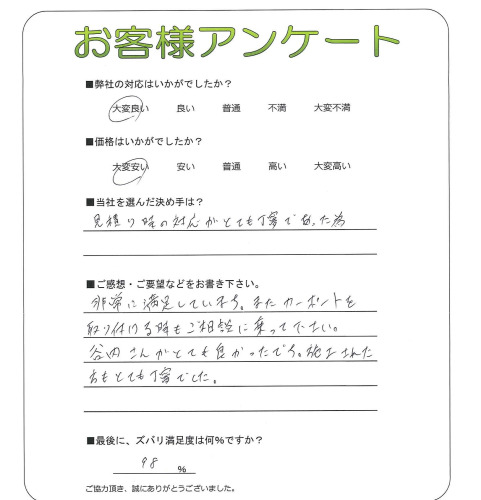 お客様アンケート
■弊社の対応はいかがでしたか？
大変良い 良い 普通 不満 大変不満
■価格はいかがでしたか？
大変安い 安い 普通 高い 大変高い
■当社を選んだ決め手は？
見積り時の対応がとても丁寧であった為
■ご感想・ご要望などをお書き下さい。
非常に満足しています。またカーポートを
取り付ける時もご相談に乗って下さい。
谷内さんがとても良かったです。施工された
方もとても丁寧でした。
■最後に、ズバリ満足度は何%ですか？
98 %
ご協力頂き、誠にありがとうございました。